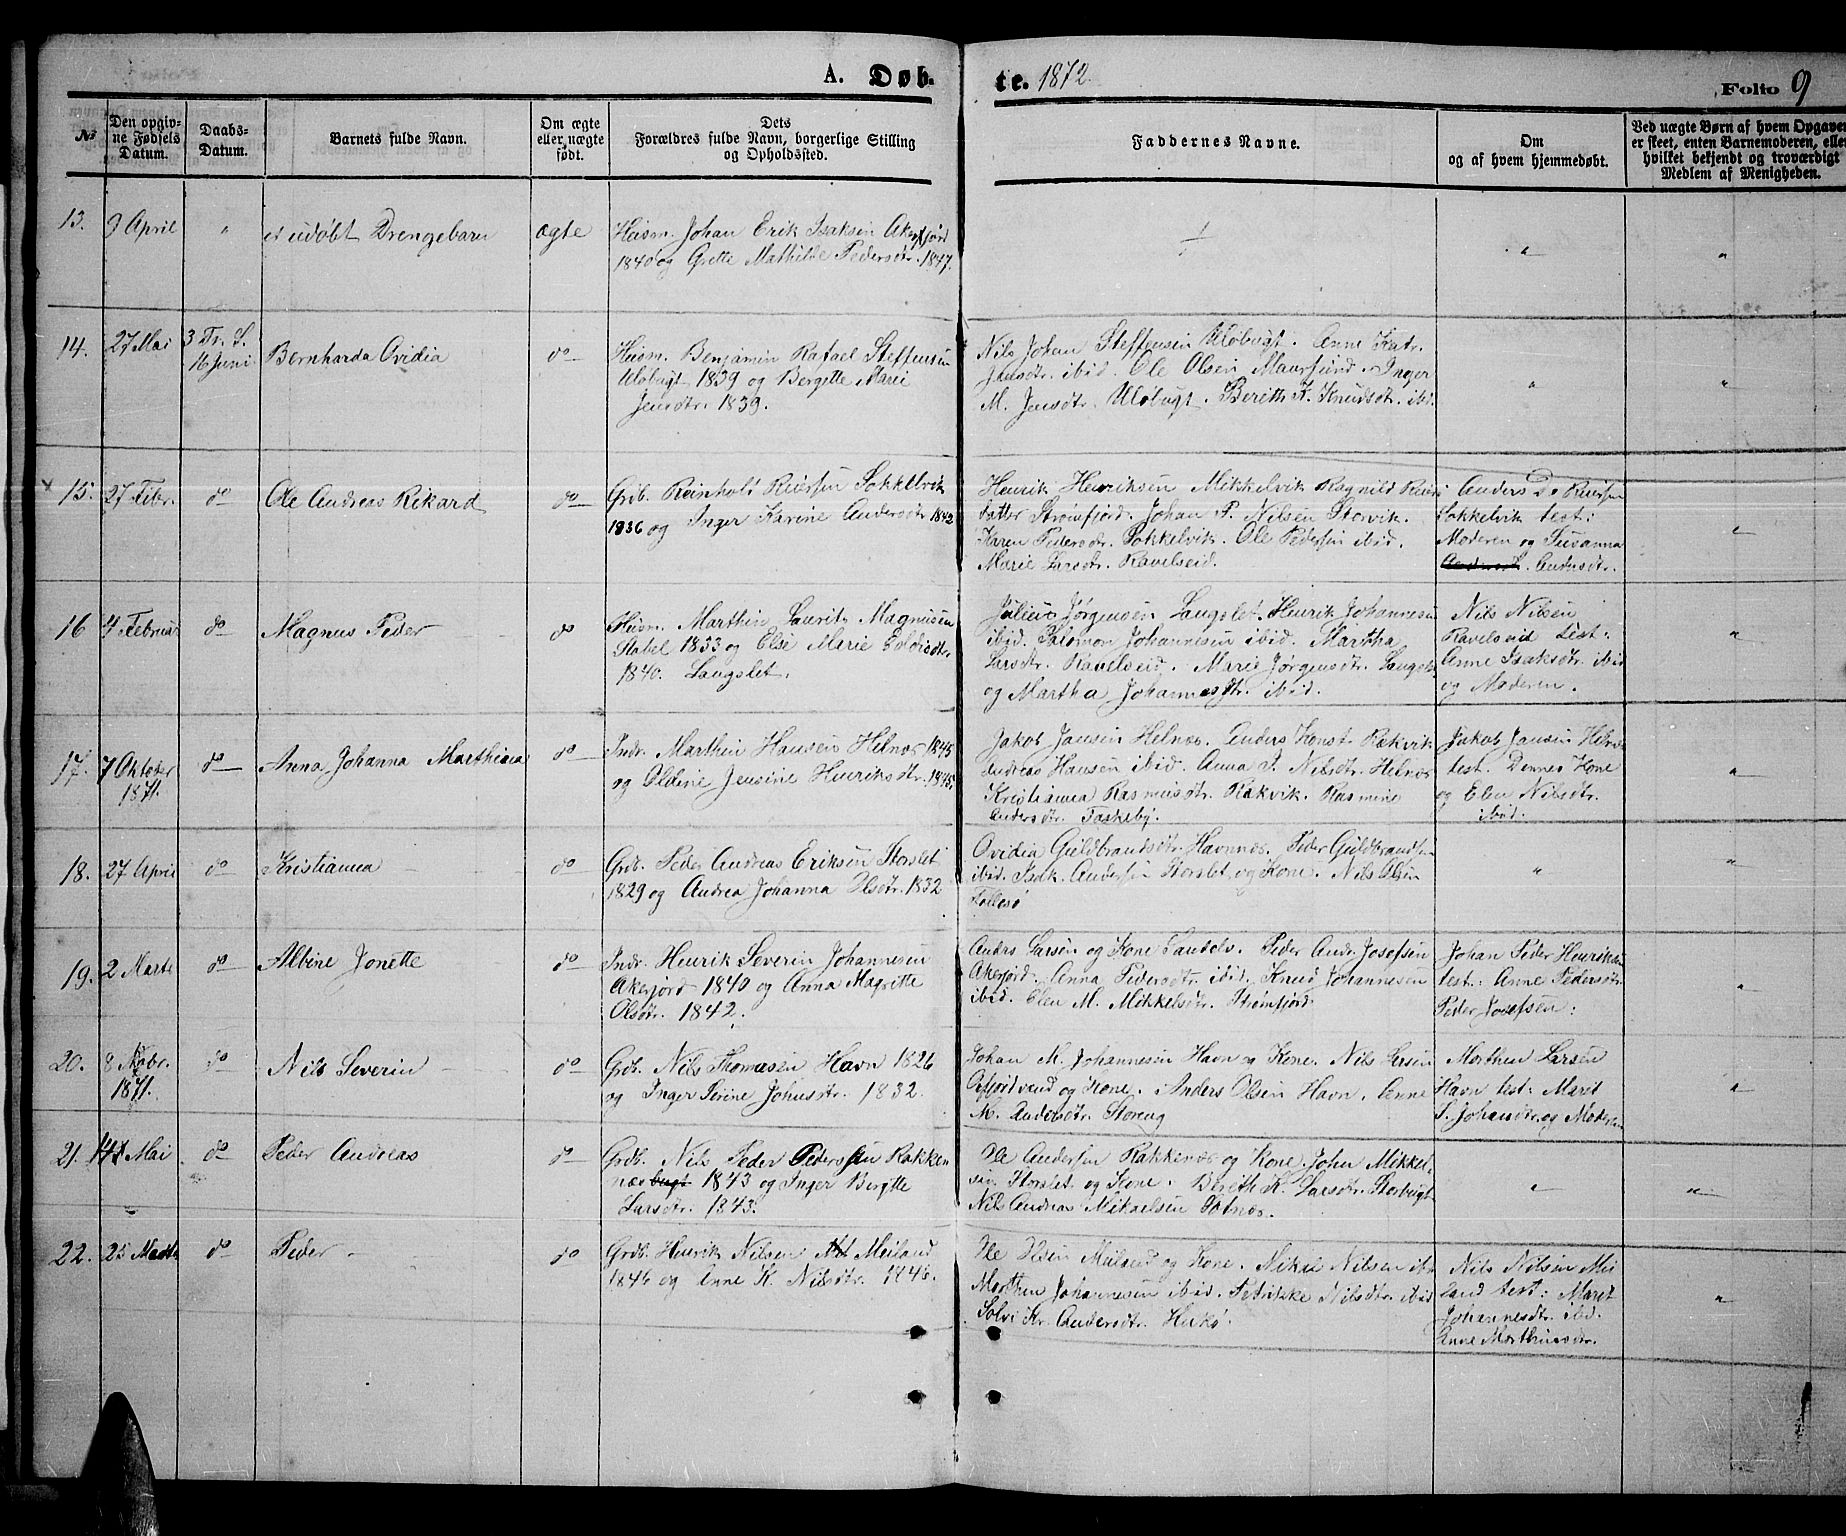 A. Døb- te. 1872. Folio 9
No
Den opgiv-
ne Fødsels
Datum.
Daabs-
Datum.
Barnets fulde Navn.
Om ægte
eller uægte
født.
Dets
Forældres fulde Navn, borgerlige Stilling
og Opholdssted.
Faddernes Navne.
Om
og af hvem hjemmedøbt.
Ved uægte Børn af hvem Opgaven
er skeet, enten Barnemoderen, eller
hvilket bekjendt og troværdigt
Medlem af Menigheden.
13. 9 April " et udøbt Drengebarn ægte
Huism. Johan Erik Isaksen Akerfjord
1840 og Grette Mathilde Pedersdtr. 1847.
" "
14. 27 Mai 3 Tr. S.
16 Juni Bernharda Ovidia do
Huism. Benjamin Rafael Steffensen
Uløbugt 1839 og Bergette Marie
Jensdtr. 1839.
Nils Johan Steffensen Uløbugt. Anne Katr.
Jensdtr. ibid. Ole Olsen Maursund. Inger
M. Jensdtr. Uløbugt. Berith K. Knudsdtr. ibd.
" "
15. 27 Febr. do Ole Andreas Rikard do
Grdb. Reinholt Riersen Sokkelvik
1836 og Inger Karine Andersdtr 1842
Henrik Henriksen Mikkelvik Ragnild Riers
datter Strømfjord. Johan P. Nilsen Storvik.
Karen Pedersdtr. Sokkelvik. Ole Pedersen ibid.
Marie Larsdtr. Ravelseid.
Anders Riersen
Sokkelvik test:
Moderen og Susanna
Andersdtr.
"
16 4 Februar do Magnus Peder do
Huism. Marthin Lauritz Magnusen
Stabel 1833 og Else Marie
1840. Langslet.
Julius Jørgensen Langslet. Henrik Johannesen
ibid. Salomon Johannesen ibid. Martha
Larsdtr. Ravelseid. Marie Jørgensdtr. Langslt
og Martha Johannesdtr. ibid.
Nils Nilsen
Ravelseid test:
Anne Isaksdtr. ibid
og Moderen.
"
17. 7 Oktober
1871. do Anna Johanna Marthiana do
Indr. Marthin Hansen Helnæs 1845
og Oldine Jensine Henriksdtr. 1845.
Jakob Jansen Helnæs. Anders Konst. Rakvik
Andreas Hansen ibid. Anna J. Nilsdtr. Helnæs
Kristianna Rasmusdtr. Rakvik. Rasmine
Andersdtr. Taskeby.
Jakob Jansen Helnæs
test. Dennes Kone
og Elen Nilsdtr.
ibid.
"
18. 27 April do Kristianna do
Grdb. Peder Andreas Eriksen Storslet
1829 og Andrea Johanna Olsdtr. 1832
Ovidia Guldbrandsdtr. Havnnæs. Peder Guldbrandsen
ibid. Isak Andersen Storslet og Kone. Nils Olsen
Follesø
" "
19. 2 Marts do Albine Jonette do
Indr. Henrik Severin Johannesen
Akerfjord 1840 og Anna Magritte
Olsdtr. 1842.
Anders Larsen og Kone. Peder Andr. Josefsen
Akerfjord. Anna Pedersdtr. ibid. Knud Johannesen
ibid. Elen M. Mikkelsdtr. Strømfjord
Johan Peder Henriksen
test: Anne Pedersdtr.
Peder Josefsen:
"
20. 8 Novbr.
1871. do Nils Severin do
Grdb. Nils Thomasen Havn 1826
og Inger Serine Johnsdtr. 1832.
Johan M. Johannesen Havn og Kone. Nils Larsen
og Kone. Anders Olsen Havn. Anne
M. Andersdtr. Storeng
Morthen Larsen
Havn test: Marit
S. Johansdtr. og Moderen
"
21. 14 Mai do Peder Andreas do
Grdb. Nils Peder Pedersen Rakken
næs bugt 1843 og Inger Bergitte
Larsdtr. 1843.
Ole Andersen Rakkenæs og Kone. John Mikkel-
sen Storslet og Kone. Berith K. Larsdtr. Storbugt
Nils Andreas Mikkelsen
" "
22. 25 Marts do Peder do
Grdb. Henrik Nilsen Meiland
1846 og Anne K. Nilsdtr. 1846.
Ole Olsen Meiland og Kone. Mikal Nilsen ibd
Morthen Johannesen ibid. Petrikke Nilsdtr. ibid
Solvi Kr. Andersdtr.
Nils Nilsen Mei
land test: Maret
Johannesdtr. ibd.
Anne Morthensdtr.
"